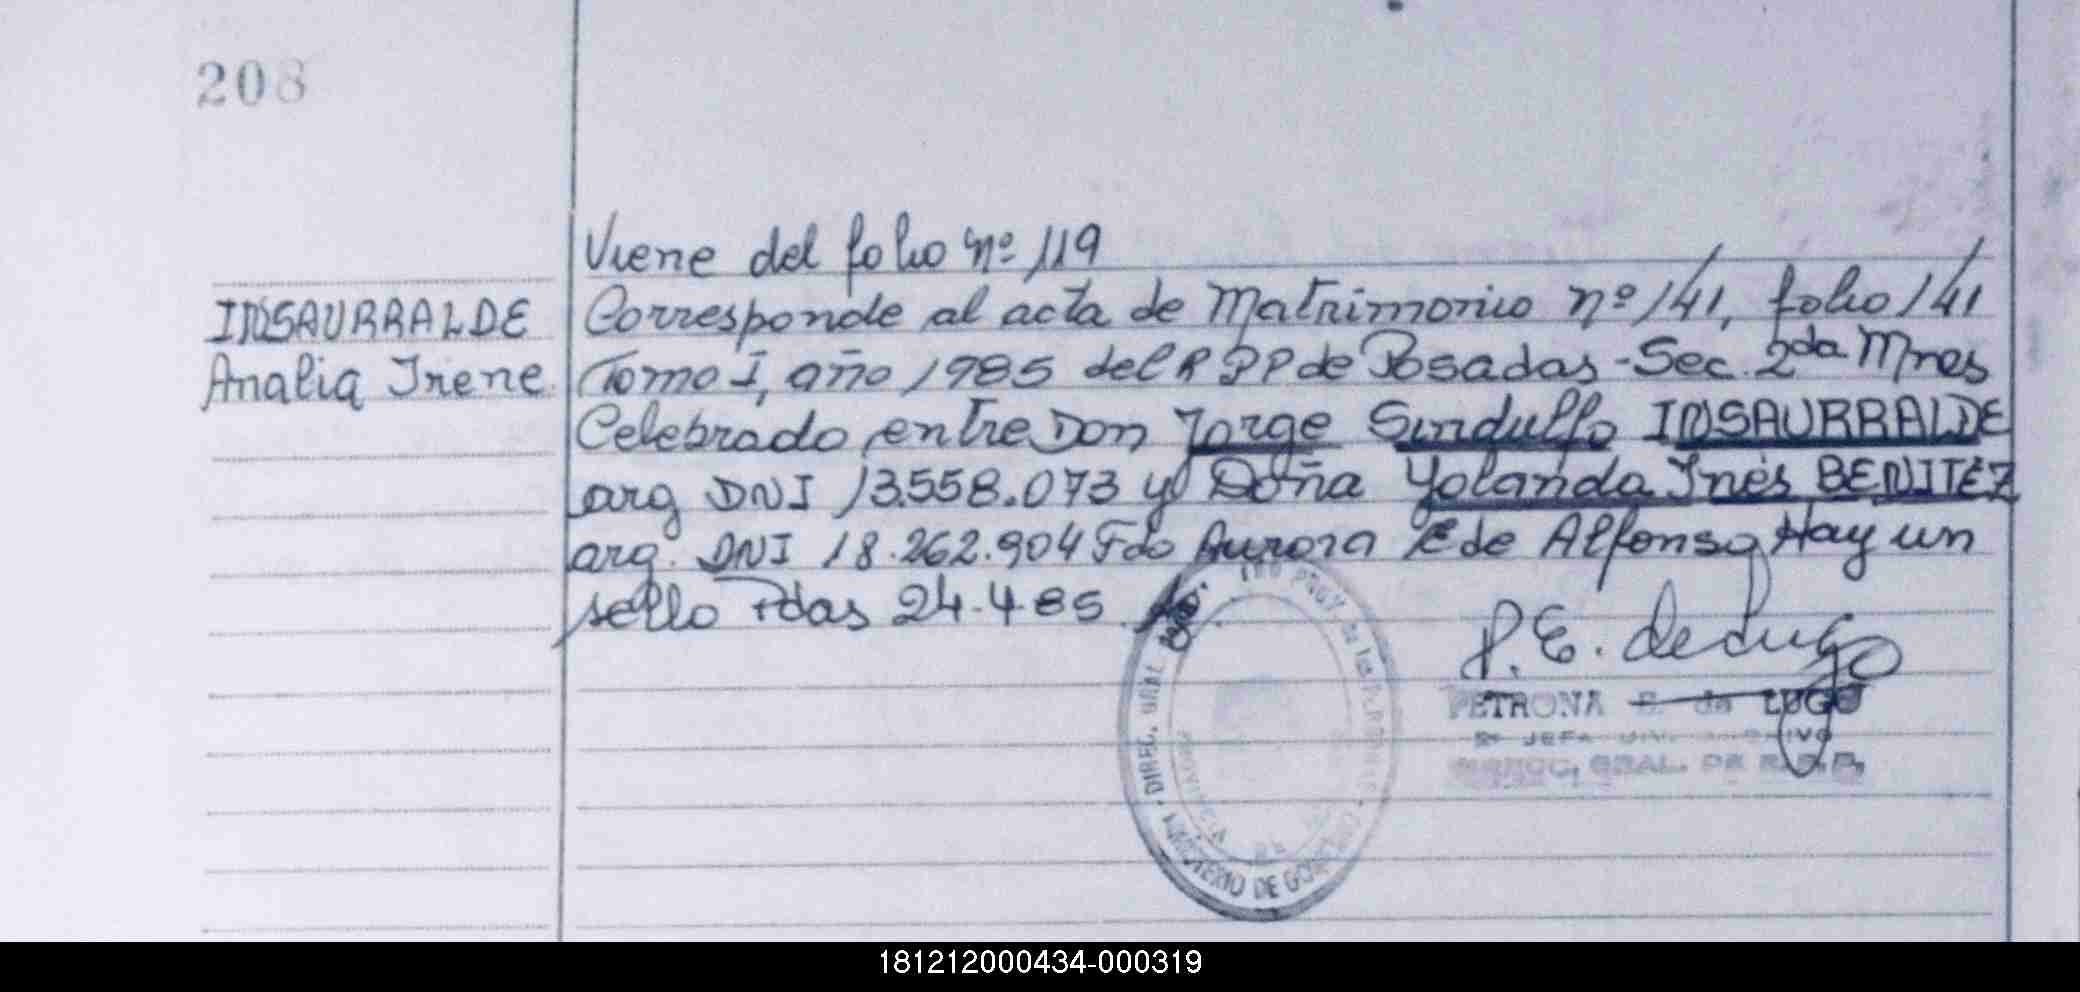 208
Viene del folio nº 119
INSAURRALDE
Analia Irene.
Corresponde al acta de Matrimonio nº 141, folio 141
Tomo I, año 1985 del R P P de Posadas - Sec. 2da Mnes
Celebrado entre Don Jorge Sindulfo INSAURRALDE
arg DNI 13.558.073 y Doña Yolanda Inés BENITEZ
arg. DNI 18.262.904 Fdo Aurora E de Alfonso Hay un
sello Pdas 24-4-85
P. E. de Lugo
PETRONA E. de LUGO
2º JEFA DIV. ARCHIVO
DIREC. GRAL. DE R.P.P.
DIREC. GRAL
MINISTERIO DE GOBIERNO
181212000434-000319